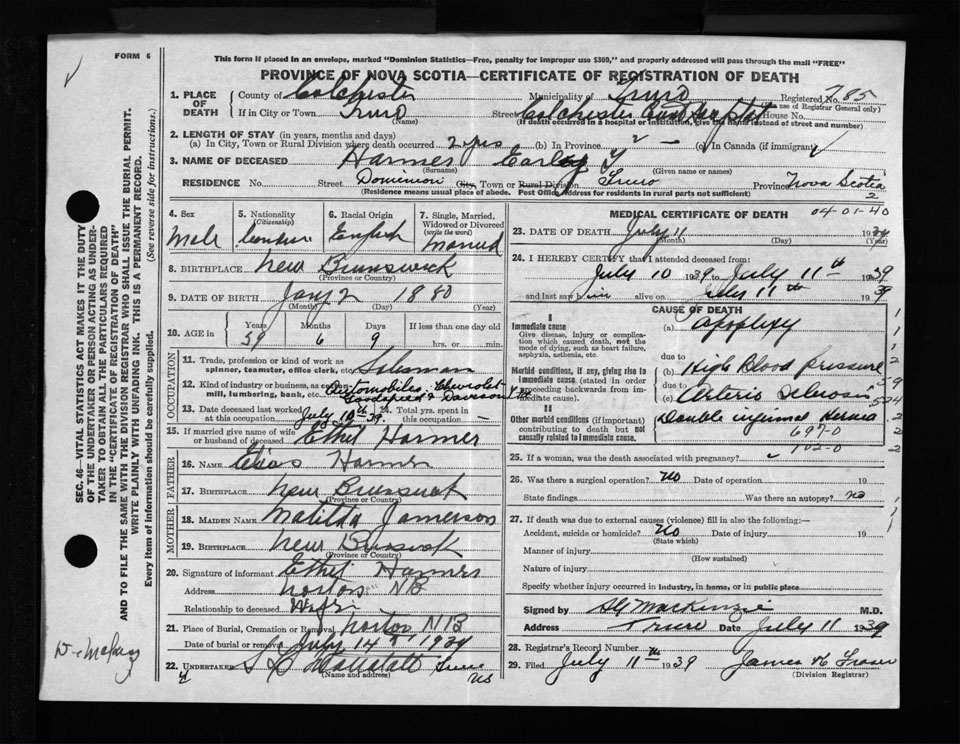 FORM 6
This form if placed in an envelope, marked "Dominion Statistics—Free, penalty for improper use $300," and properly addressed will pass through the mail "FREE"
PROVINCE OF NOVA SCOTIA—CERTIFICATE OF REGISTRATION OF DEATH
1. PLACE OF DEATH County of Colchester Municipality of Truro Registered No. 785
(For use of Registrar General only)
If in City or Town Truro (Name) Street Colchester House No.
(If death occurred in a hospital or institution, give the name instead of street and number)
2. LENGTH OF STAY (in years, months and days)
(a) In City, Town or Rural Division where death occurred 2 yrs (b) In Province 2 — (c) In Canada (if immigrant)
3. NAME OF DECEASED Harmer Y
(Surname) (Given name or names)
RESIDENCE No. Street Dominion City, Town or Rural Division Truro Province Nova Scotia
(Residence means usual place of abode. Post Office Address for residents in rural parts not sufficient) 2
4. Sex Male
5. Nationality (Citizenship)
6. Racial Origin English
7. Single, Married, Widowed or Divorced (write the word) Married
8. BIRTHPLACE New Brunswick
(Province or Country)
9. DATE OF BIRTH Jany 2 1880
(Month) (Day) (Year)
10. AGE in Years 59 Months 6 Days 9 If less than one day old hrs. or min.
OCCUPATION
11. Trade, profession or kind of work as spinner, teamster, office clerk, etc. Salesman
12. Kind of industry or business, as cotton-mill, lumbering, bank, etc. Automobiles, Chevrolet
13. Date deceased last worked at this occupation July 10th 39 14. Total yrs. spent in this occupation —
15. If married give name of wife or husband of deceased Ethel Harmer
FATHER
16. NAME Harmer
17. BIRTHPLACE New Brunswick
(Province or Country)
MOTHER
18. MAIDEN NAME Jamerson
19. BIRTHPLACE New Brunswick
(Province or Country)
20. Signature of informant Ethel Harmer
Address Norton NB
Relationship to deceased Wife
21. Place of Burial, Cremation or Removal Norton NB
Date of burial or removal July 14 1939
22. UNDERTAKER Truro NS
(Name and address)
MEDICAL CERTIFICATE OF DEATH
04-01-40
23. DATE OF DEATH July 11 1939
(Month) (Day) (Year)
24. I HEREBY CERTIFY that I attended deceased from:
July 10 1939 to July 11th 1939
and last saw him alive on July 11th 1939
CAUSE OF DEATH
I
Immediate cause
Give disease, injury or complication which caused death, not the mode of dying, such as heart failure, asphyxia, asthenia, etc.
(a) Apoplexy
due to
Morbid conditions, if any, giving rise to immediate cause (stated in order proceeding backwards from immediate cause).
(b) High Blood Pressure
due to
(c) Arterio Sclerosis
II
Other morbid conditions (if important) contributing to death but not causally related to immediate cause.
Double inguinal Hernia
697-0
102-0
25. If a woman, was the death associated with pregnancy?
26. Was there a surgical operation? No Date of operation 19
State findings Was there an autopsy? no
27. If death was due to external causes (violence) fill in also the following:—
Accident, suicide or homicide? No Date of injury 19
(State which)
Manner of injury
(How sustained)
Nature of injury
Specify whether injury occurred in industry, in home, or in public place
Signed by MacKenzie M.D.
Address Truro Date July 11 1939
28. Registrar's Record Number
29. Filed July 11th 1939 James Fraser
(Division Registrar)
SEC. 46—VITAL STATISTICS ACT MAKES IT THE DUTY OF THE UNDERTAKER OR PERSON ACTING AS UNDERTAKER TO OBTAIN ALL THE PARTICULARS REQUIRED IN THE "CERTIFICATE OF REGISTRATION OF DEATH"
AND TO FILE THE SAME WITH THE DIVISION REGISTRAR WHO SHALL ISSUE THE BURIAL PERMIT.
WRITE PLAINLY WITH UNFADING INK. THIS IS A PERMANENT RECORD.
Every item of information should be carefully supplied. (See reverse side for instructions.)